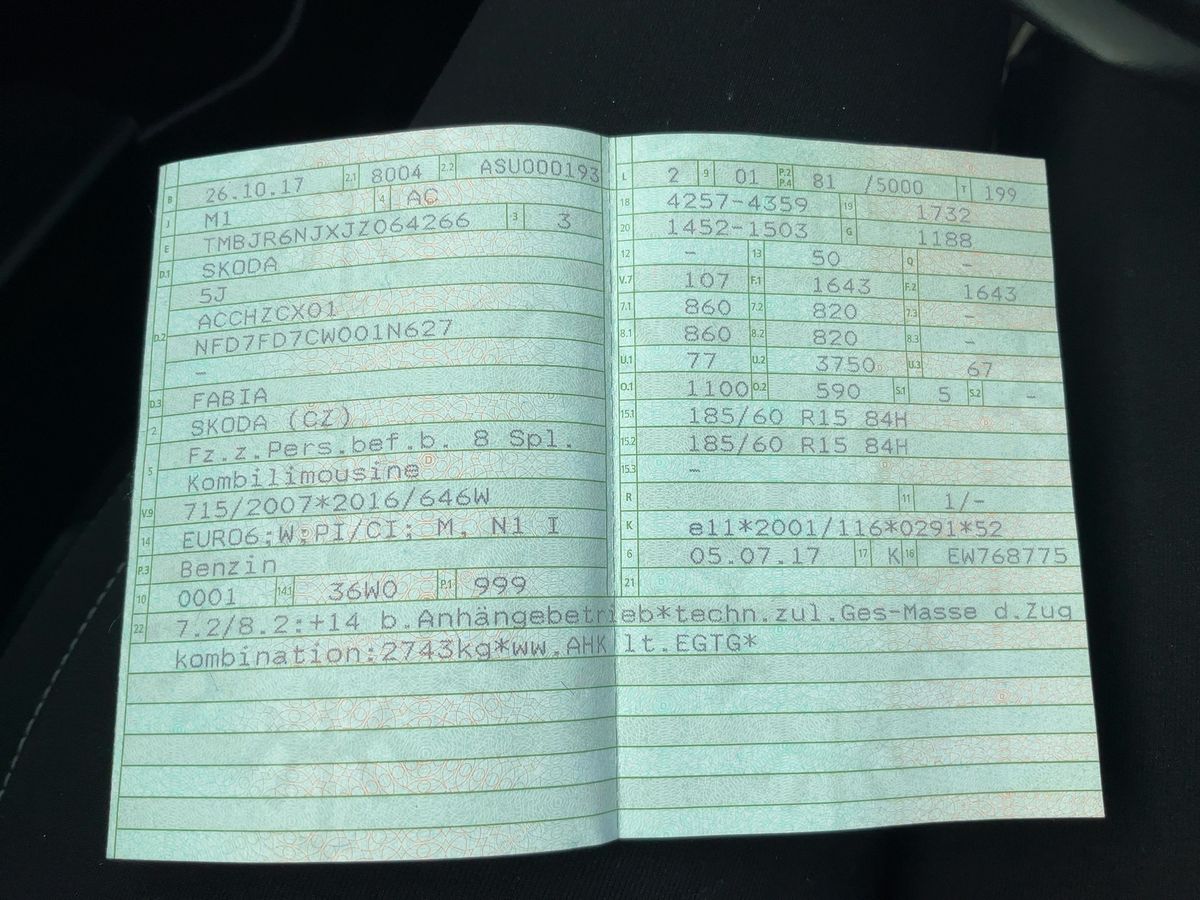 B 26.10.17 2.1 8004 2.2 ASU000193
J M1 4 AC
E TMBJR6NJXJZ064266 3 3
D.1 SKODA
5J
ACCHZCX01
D.2 NFD7FD7CW001N627
–
D.3 FABIA
2 SKODA (CZ)
Fz.z.Pers.bef.b. 8 Spl.
5 Kombilimousine
V.9 715/2007*2016/646W
14 EURO6;W;PI/CI; M, N1 I
P.3 Benzin
10 0001 14.1 36W0 P.1 999
L 2 9 01 P.2 P.4 81 /5000 T 199
18 4257-4359 19 1732
20 1452-1503 G 1188
12 – 13 50 Q –
V.7 107 F.1 1643 F.2 1643
7.1 860 7.2 820 7.3 –
8.1 860 8.2 820 8.3 –
U.1 77 U.2 3750 U.3 67
O.1 1100 O.2 590 S.1 5 S.2 –
15.1 185/60 R15 84H
15.2 185/60 R15 84H
15.3 –
R 11 1/-
K e11*2001/116*0291*52
6 05.07.17 17 K 16 EW768775
21
22 7.2/8.2:+14 b.Anhängebetrieb*techn.zul.Ges-Masse d.Zug
kombination:2743kg*ww.AHK lt.EGTG*